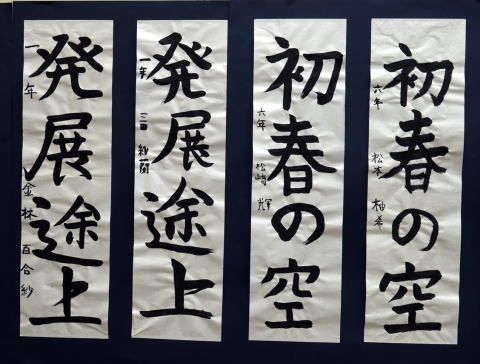 初春の空
六年 松本 柚希
初春の空
六年 松嶋 輝
発展途上
一年 三田 紗蘭
発展途上
一年 金林 百合紗